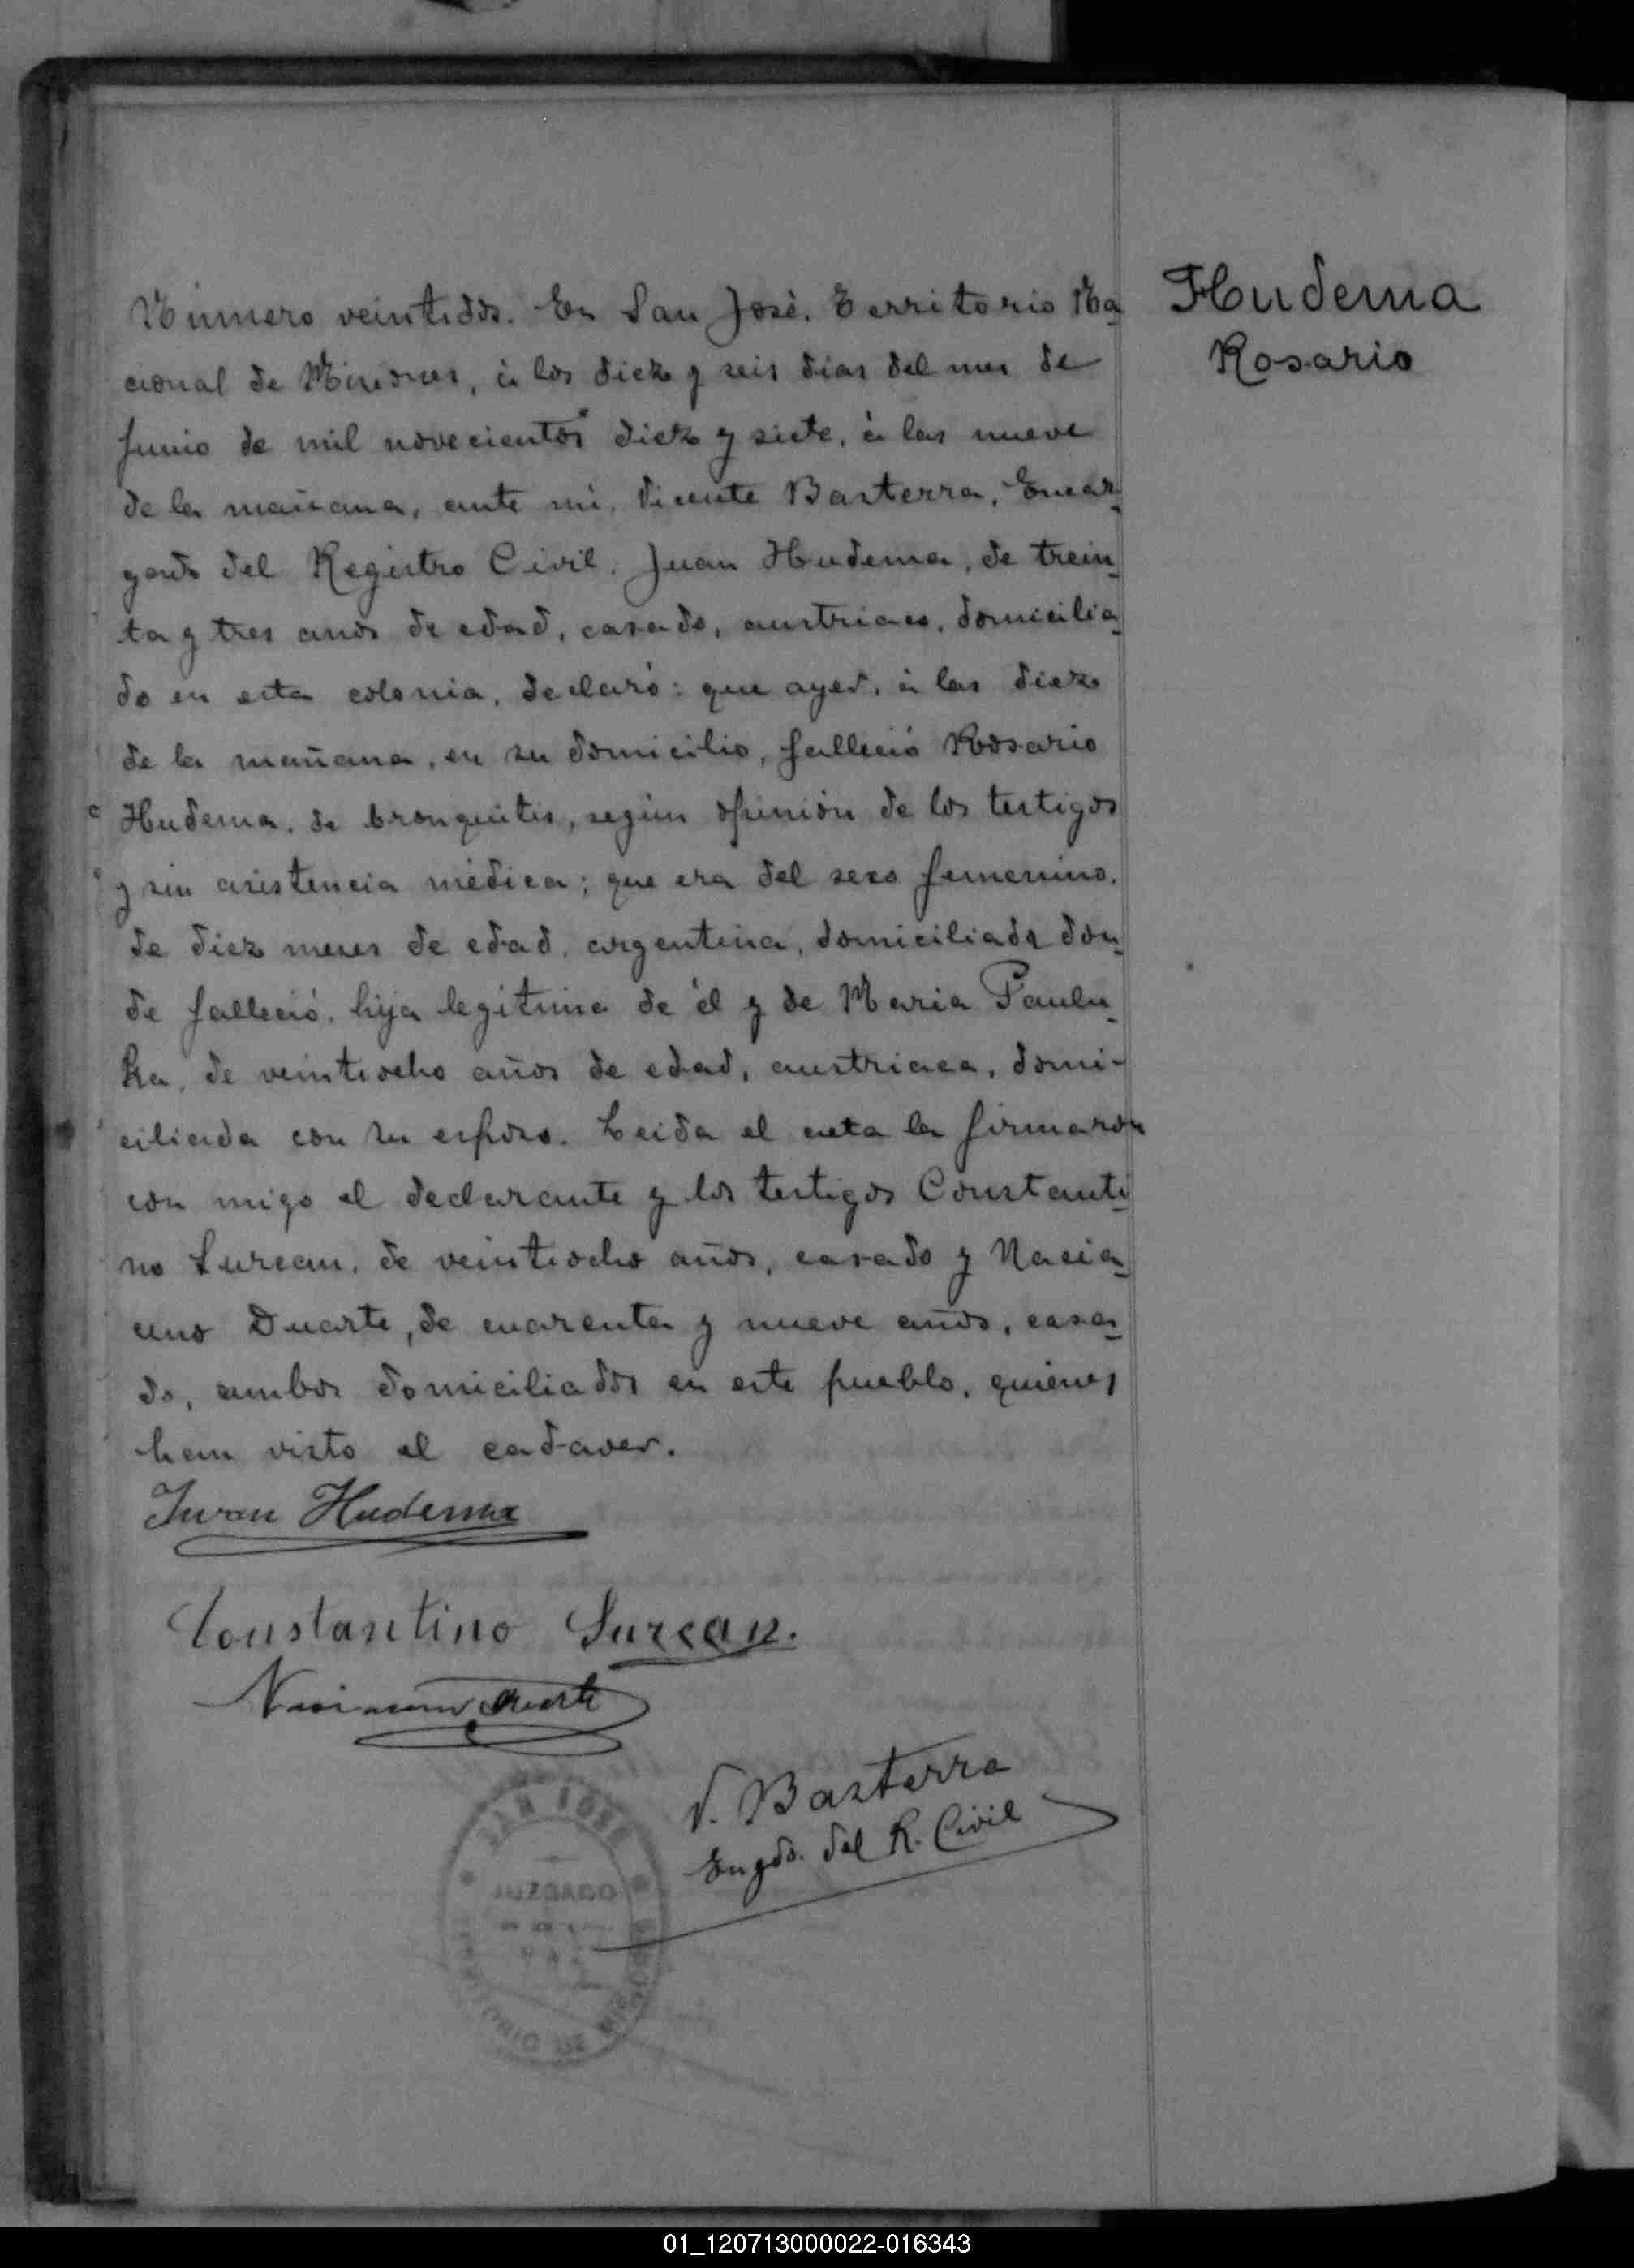 Número veintidós. En San José, Territorio Na
cional de Misiones, á los diez y seis dias del mes de
Junio de mil novecientos diez y siete, á las nueve
de la mañana, ante mi, Vicente Basterra, Encar
gado del Registro Civil. Juan Hudema, de trein
ta y tres años de edad, casado, austriaco, domicilia
do en esta colonia, declaró: que ayer, á las diez
de la mañana, en su domicilio, falleció Rosario
Hudema, de bronquitis, según opinión de los testigos
y sin asistencia médica; que era del sexo femenino,
de diez meses de edad, argentina, domiciliada don
de falleció, hija legítima de él y de Maria Paulu
ka, de veintiocho años de edad, austriaca, domi-
ciliada con su esposo. Leida el acta la firmaron
con migo el declarante y los testigos Constanti
no Surcan, de veintiocho años, casado y Nacia
ceno Duarte, de cuarenta y nueve años, casa
do, ambos domiciliados en este pueblo, quienes
han visto el cadaver.
Iwan Hudema
Constantino Surcan.
Duarte
V. Basterra
Engdo. del R. Civil
SAN JOSE
JUZGADO
DE
PAZ
TERRITORIO DE MISIONES
Hudema
Rosario
01_120713000022-016343